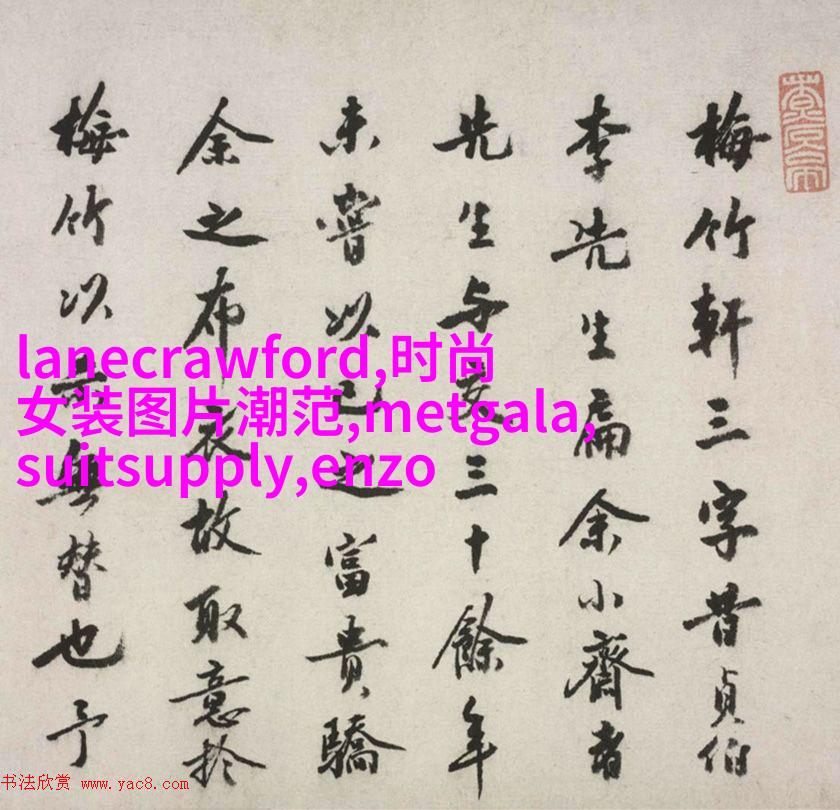 梅竹軒三字昔貞伯
李先生扁余小齋者
先生与交三十餘年
未嘗以己之富貴驕
余之布衣故取意於
梅竹以示無替也予
lanecrawford,时尚
女装图片潮范,metgala,
suitsupply,enzo
书法欣赏 www.yac8.com